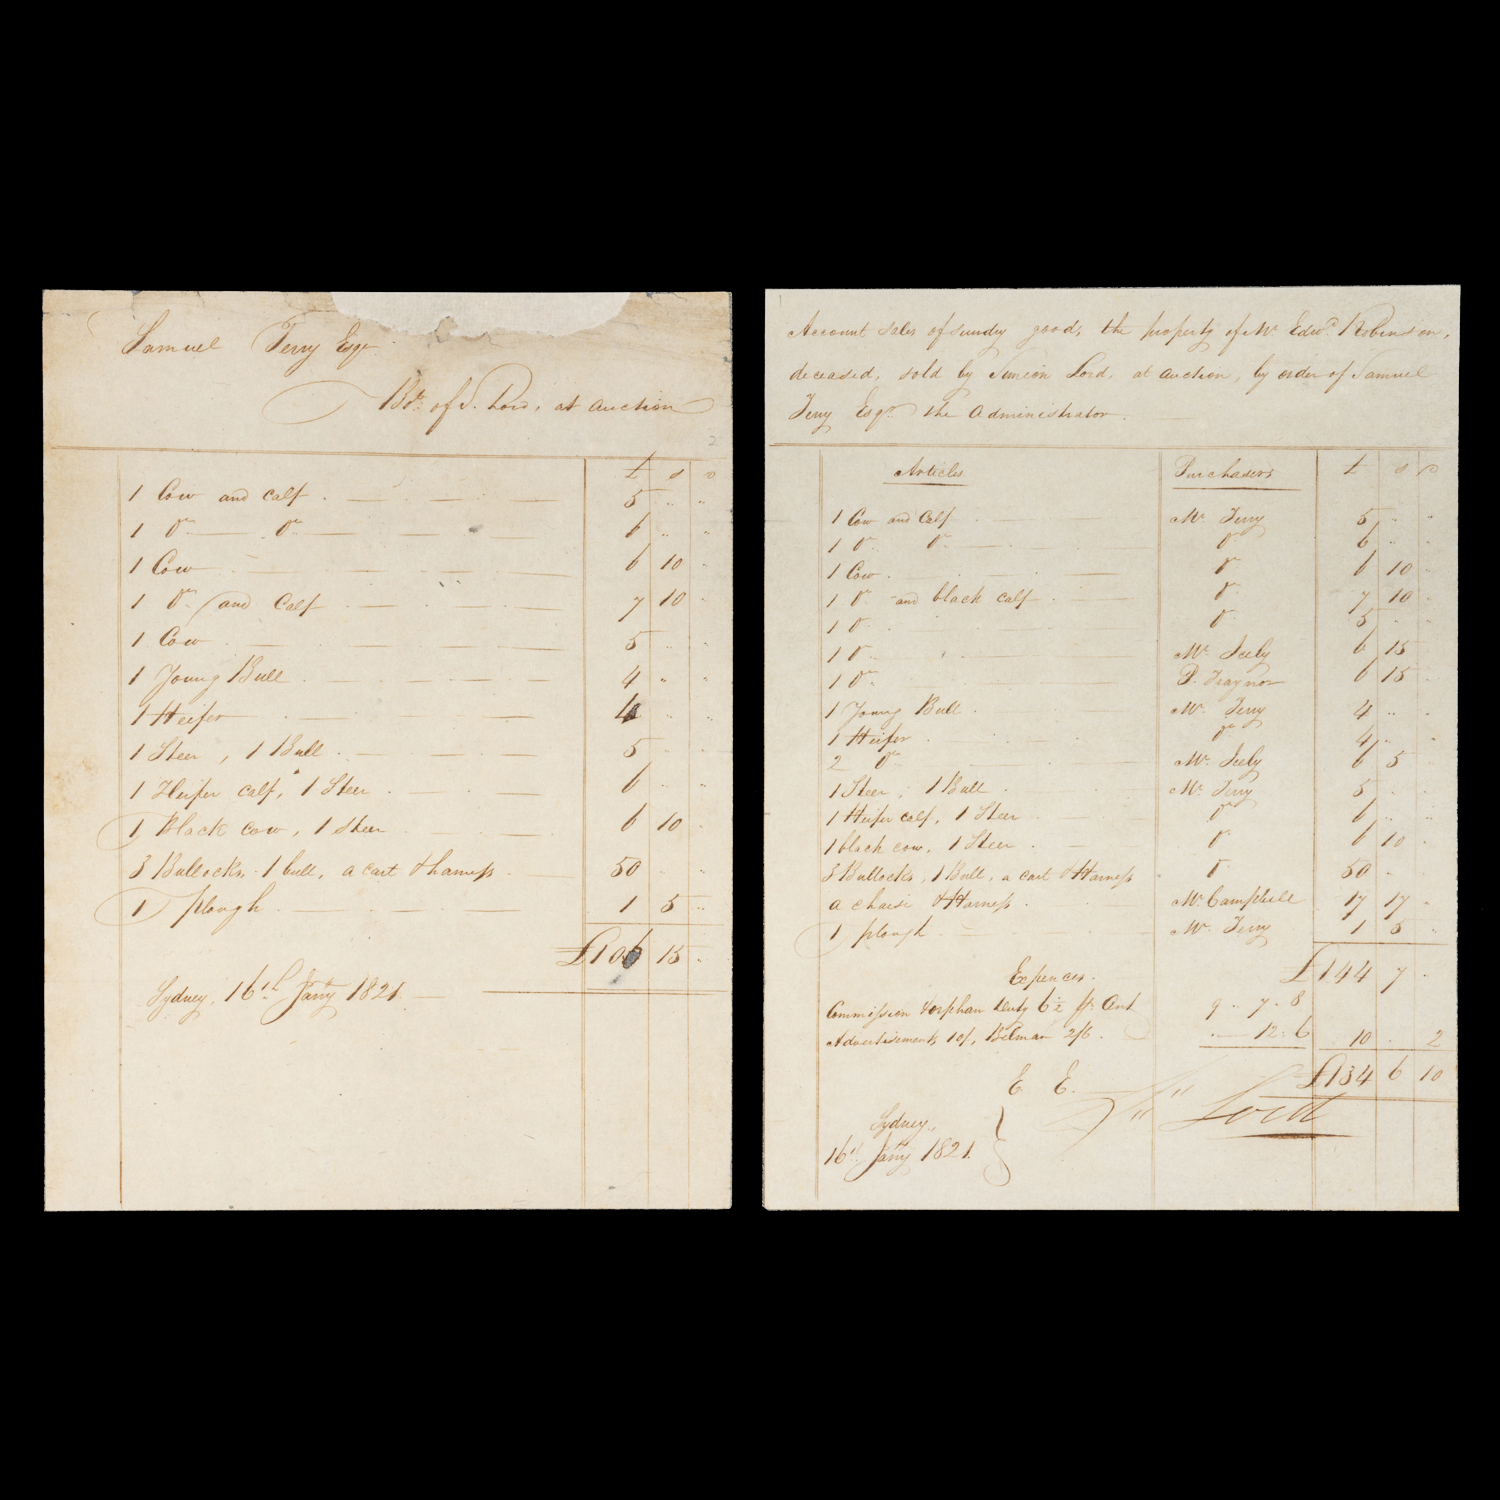 Samuel Terry Esqr
Bot. of S. Lord, at auction
2
£ s D
1 Cow and calf . 5 .. ..
1 Do Do 6 .. ..
1 Cow 6 10 ..
1 Do and Calf 7 10 ..
1 Cow 5 .. ..
1 Young Bull 4 .. ..
1 Heifer 4 .. ..
1 Steer, 1 Bull 5 .. ..
1 Heifer calf, 1 Steer 6 .. ..
1 Black cow, 1 steer 6 10 ..
3 Bullocks, 1 bull, a cart & harness 50 .. ..
1 plough 1 5 ..
£106 15 ..
Sydney, 16th Jany 1821
Account sales of sundry goods, the property of Mr Edwd. Robinson,
deceased, sold by Simeon Lord, at auction, by order of Samuel
Terry Esqr. the Administrator.
Articles Purchasers £ s D
1 Cow and Calf Mr Terry 5 .. ..
1 Do Do Do 6 .. ..
1 Cow Do 6 10 ..
1 Do and black calf Do 7 10 ..
1 Do Do 5 .. ..
1 Do Mr Seely 6 15 ..
1 Do P. Traynor 6 15 ..
1 Young Bull Mr Terry 4 .. ..
1 Heifer Do 4 .. ..
2 Do Mr Seely 6 5 ..
1 Steer, 1 Bull Mr Terry 5 .. ..
1 Heifer calf, 1 Steer Do 6 .. ..
1 black cow, 1 Steer Do 6 10 ..
3 Bullocks, 1 Bull, a cart & Harness Do 50 .. ..
a chaise & Harness Mr Campbell 17 17 ..
1 plough Mr Terry 1 5 ..
£144 7 ..
Expences.
Commission & orphan Duty 6½ pr Cent 9 .. 7 .. 8
Advertisements 10/, Belman 2/6 .. 12 : 6 10 .. 2
£134 6 10
E E.
Lord
Sydney,
16th Jany 1821.